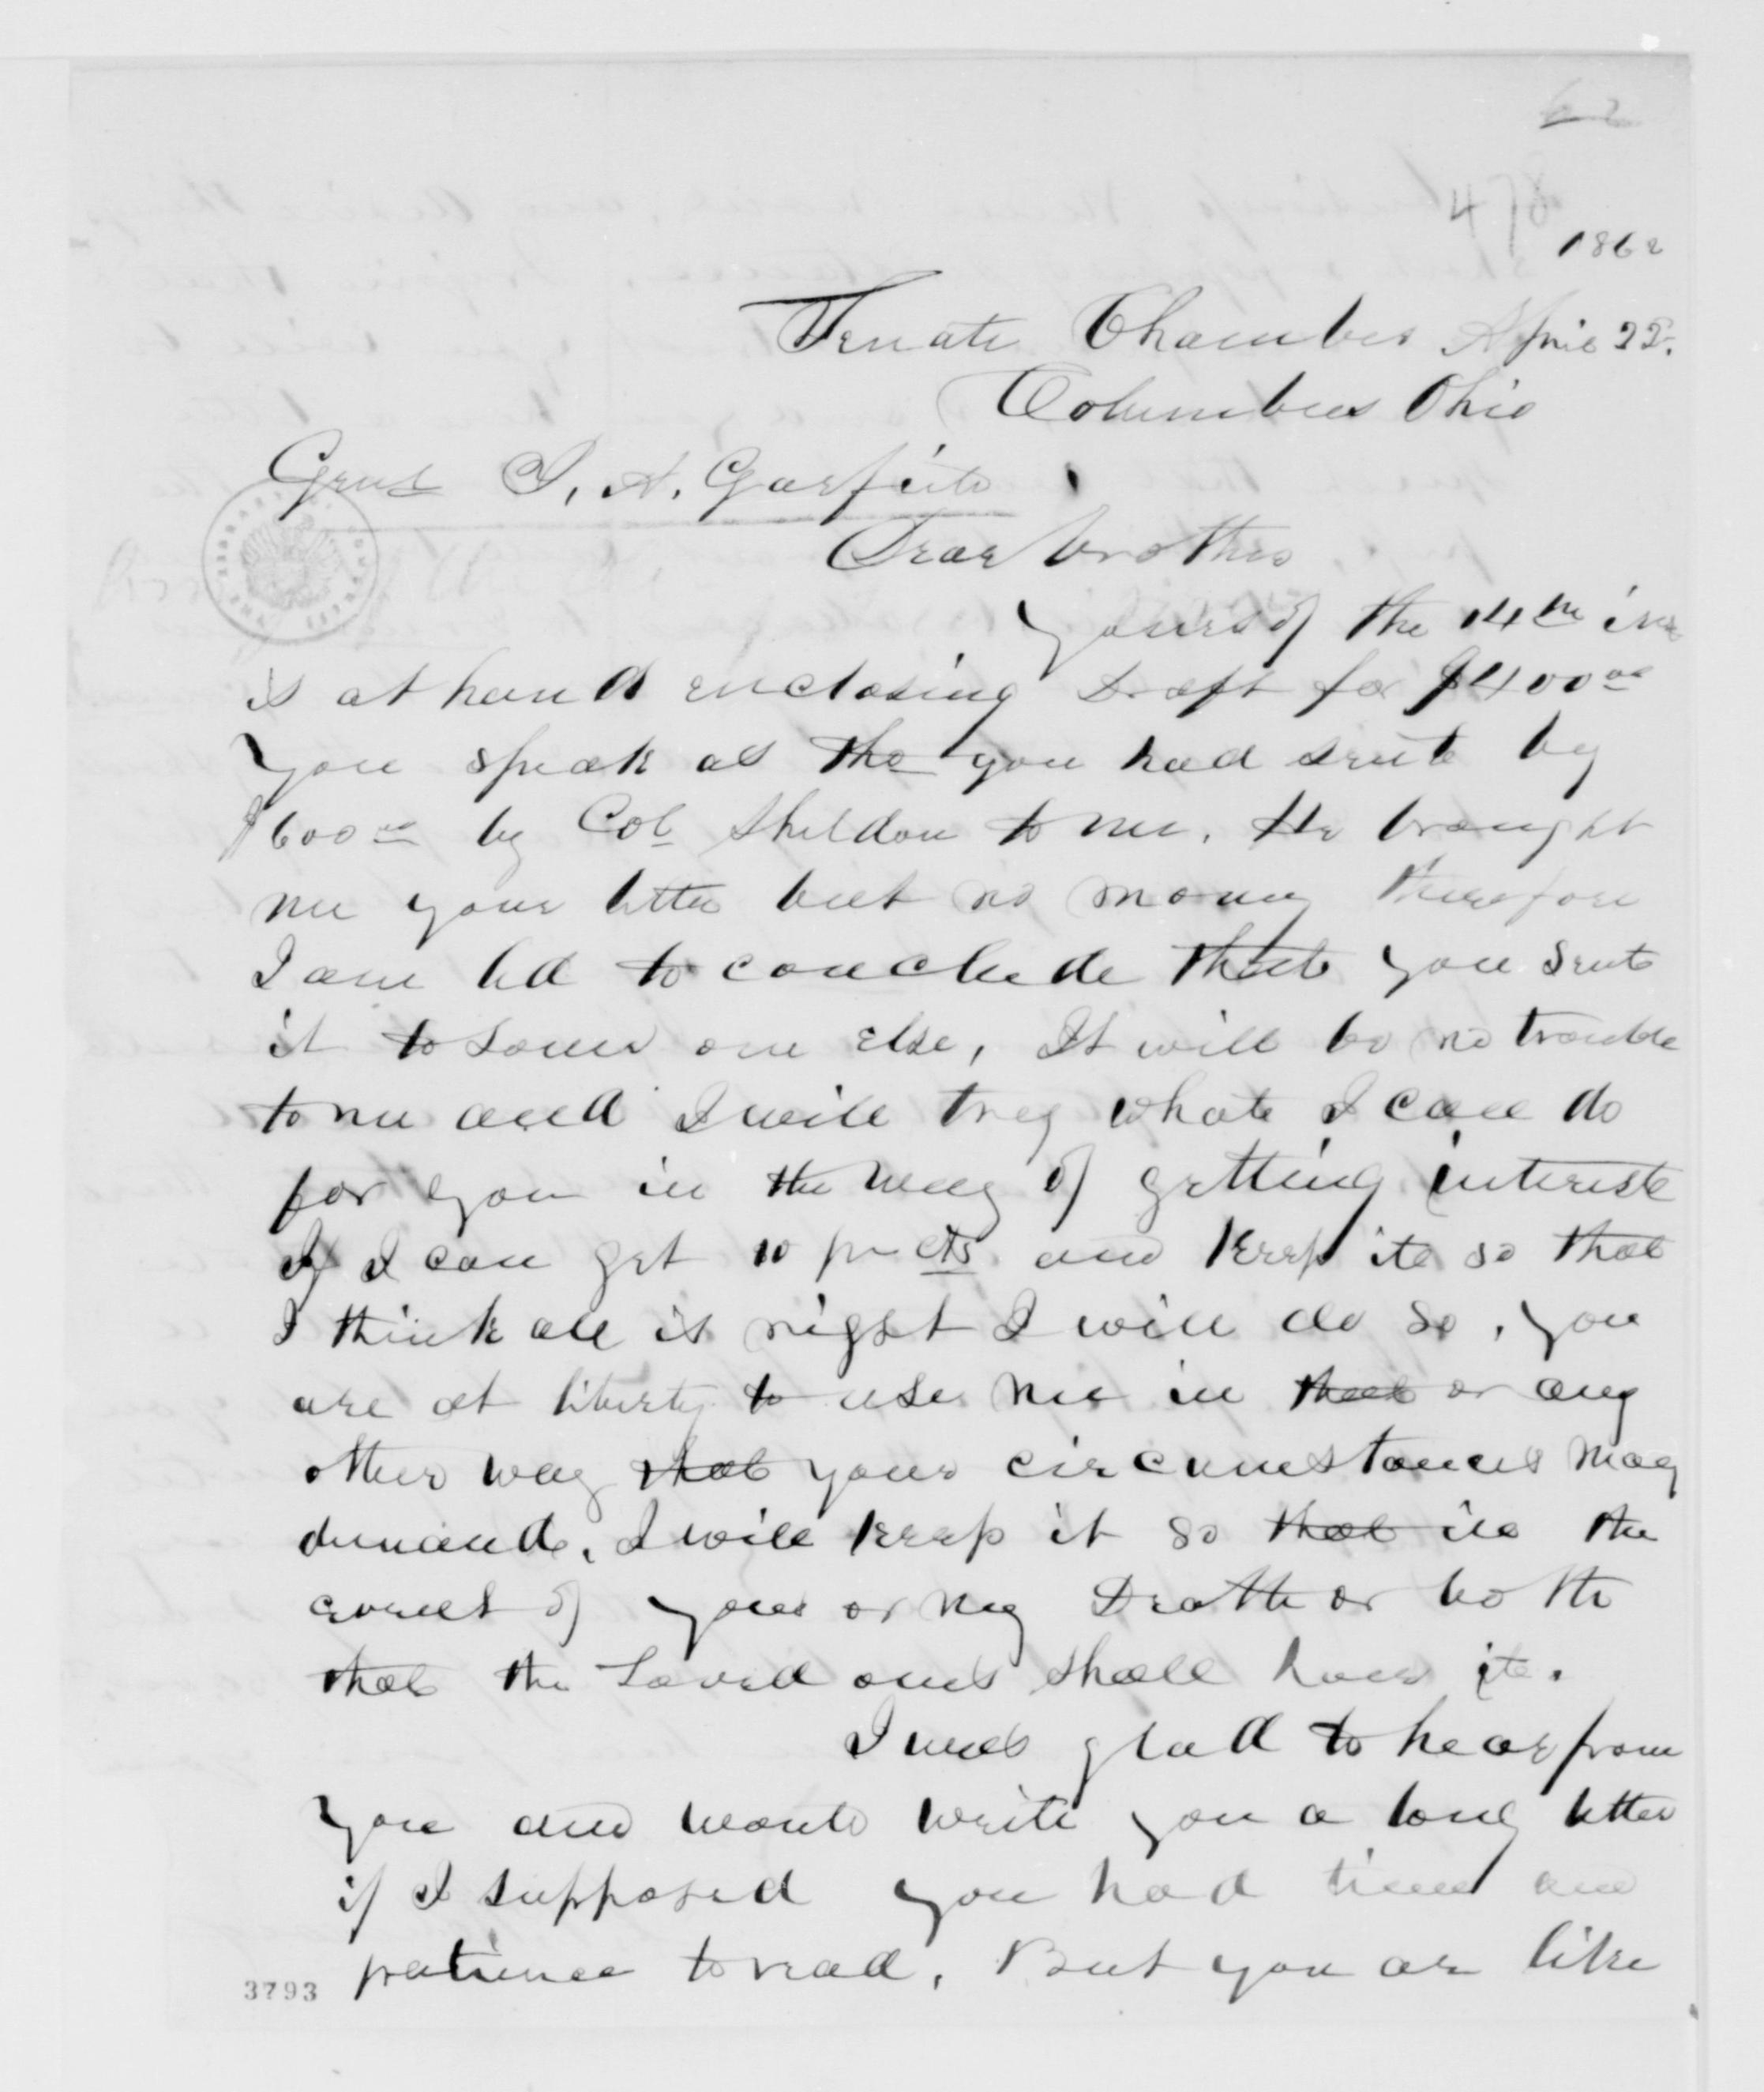 1862
Senate Chamber April 22.
Columbus Ohio
Genl J. A. Garfield
Dear brother
Yours of the 14th ins
is at hand enclosing Draft for $400 00
You speak as tho you had sent by
$600 00 by Col Sheldon to me. He brought
me your letter but no money therefore
I am led to conclude that you sent
it to some one else, It will be no trouble
to me and I will try what I can do
for you in the way of getting interest
If I can get 10 pr cts and keep it so that
I think all is right I will do so, You
are at liberty to use me in that or any
other way that your circumstances may
demand, I will keep it so that in the
event of your or my Death or both
that the Loved ones shall have it.
I was glad to hear from
You and would write you a long letter
if I supposed you had time and
patience to read, But you are like
3793